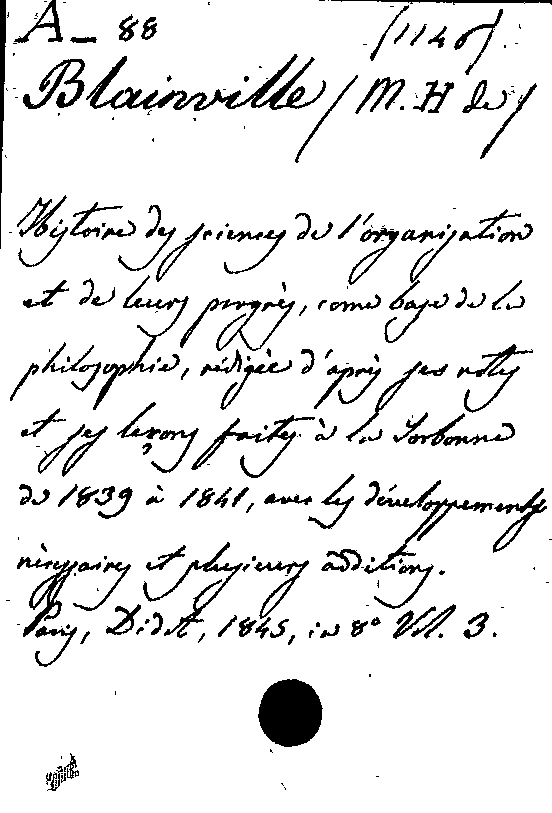 A_ 88 (1146).
Blainville (M. H de)
Histoire des sciences de l'organisation
et de leurs progrès, come base de la
philosophie, rédigée d'après ses notes
et ses leçons faites à la Sorbonne
de 1839 à 1841, avec les développements
nécessaires et plusieurs additions.
Paris, Didot, 1845, in 8° Vol. 3.